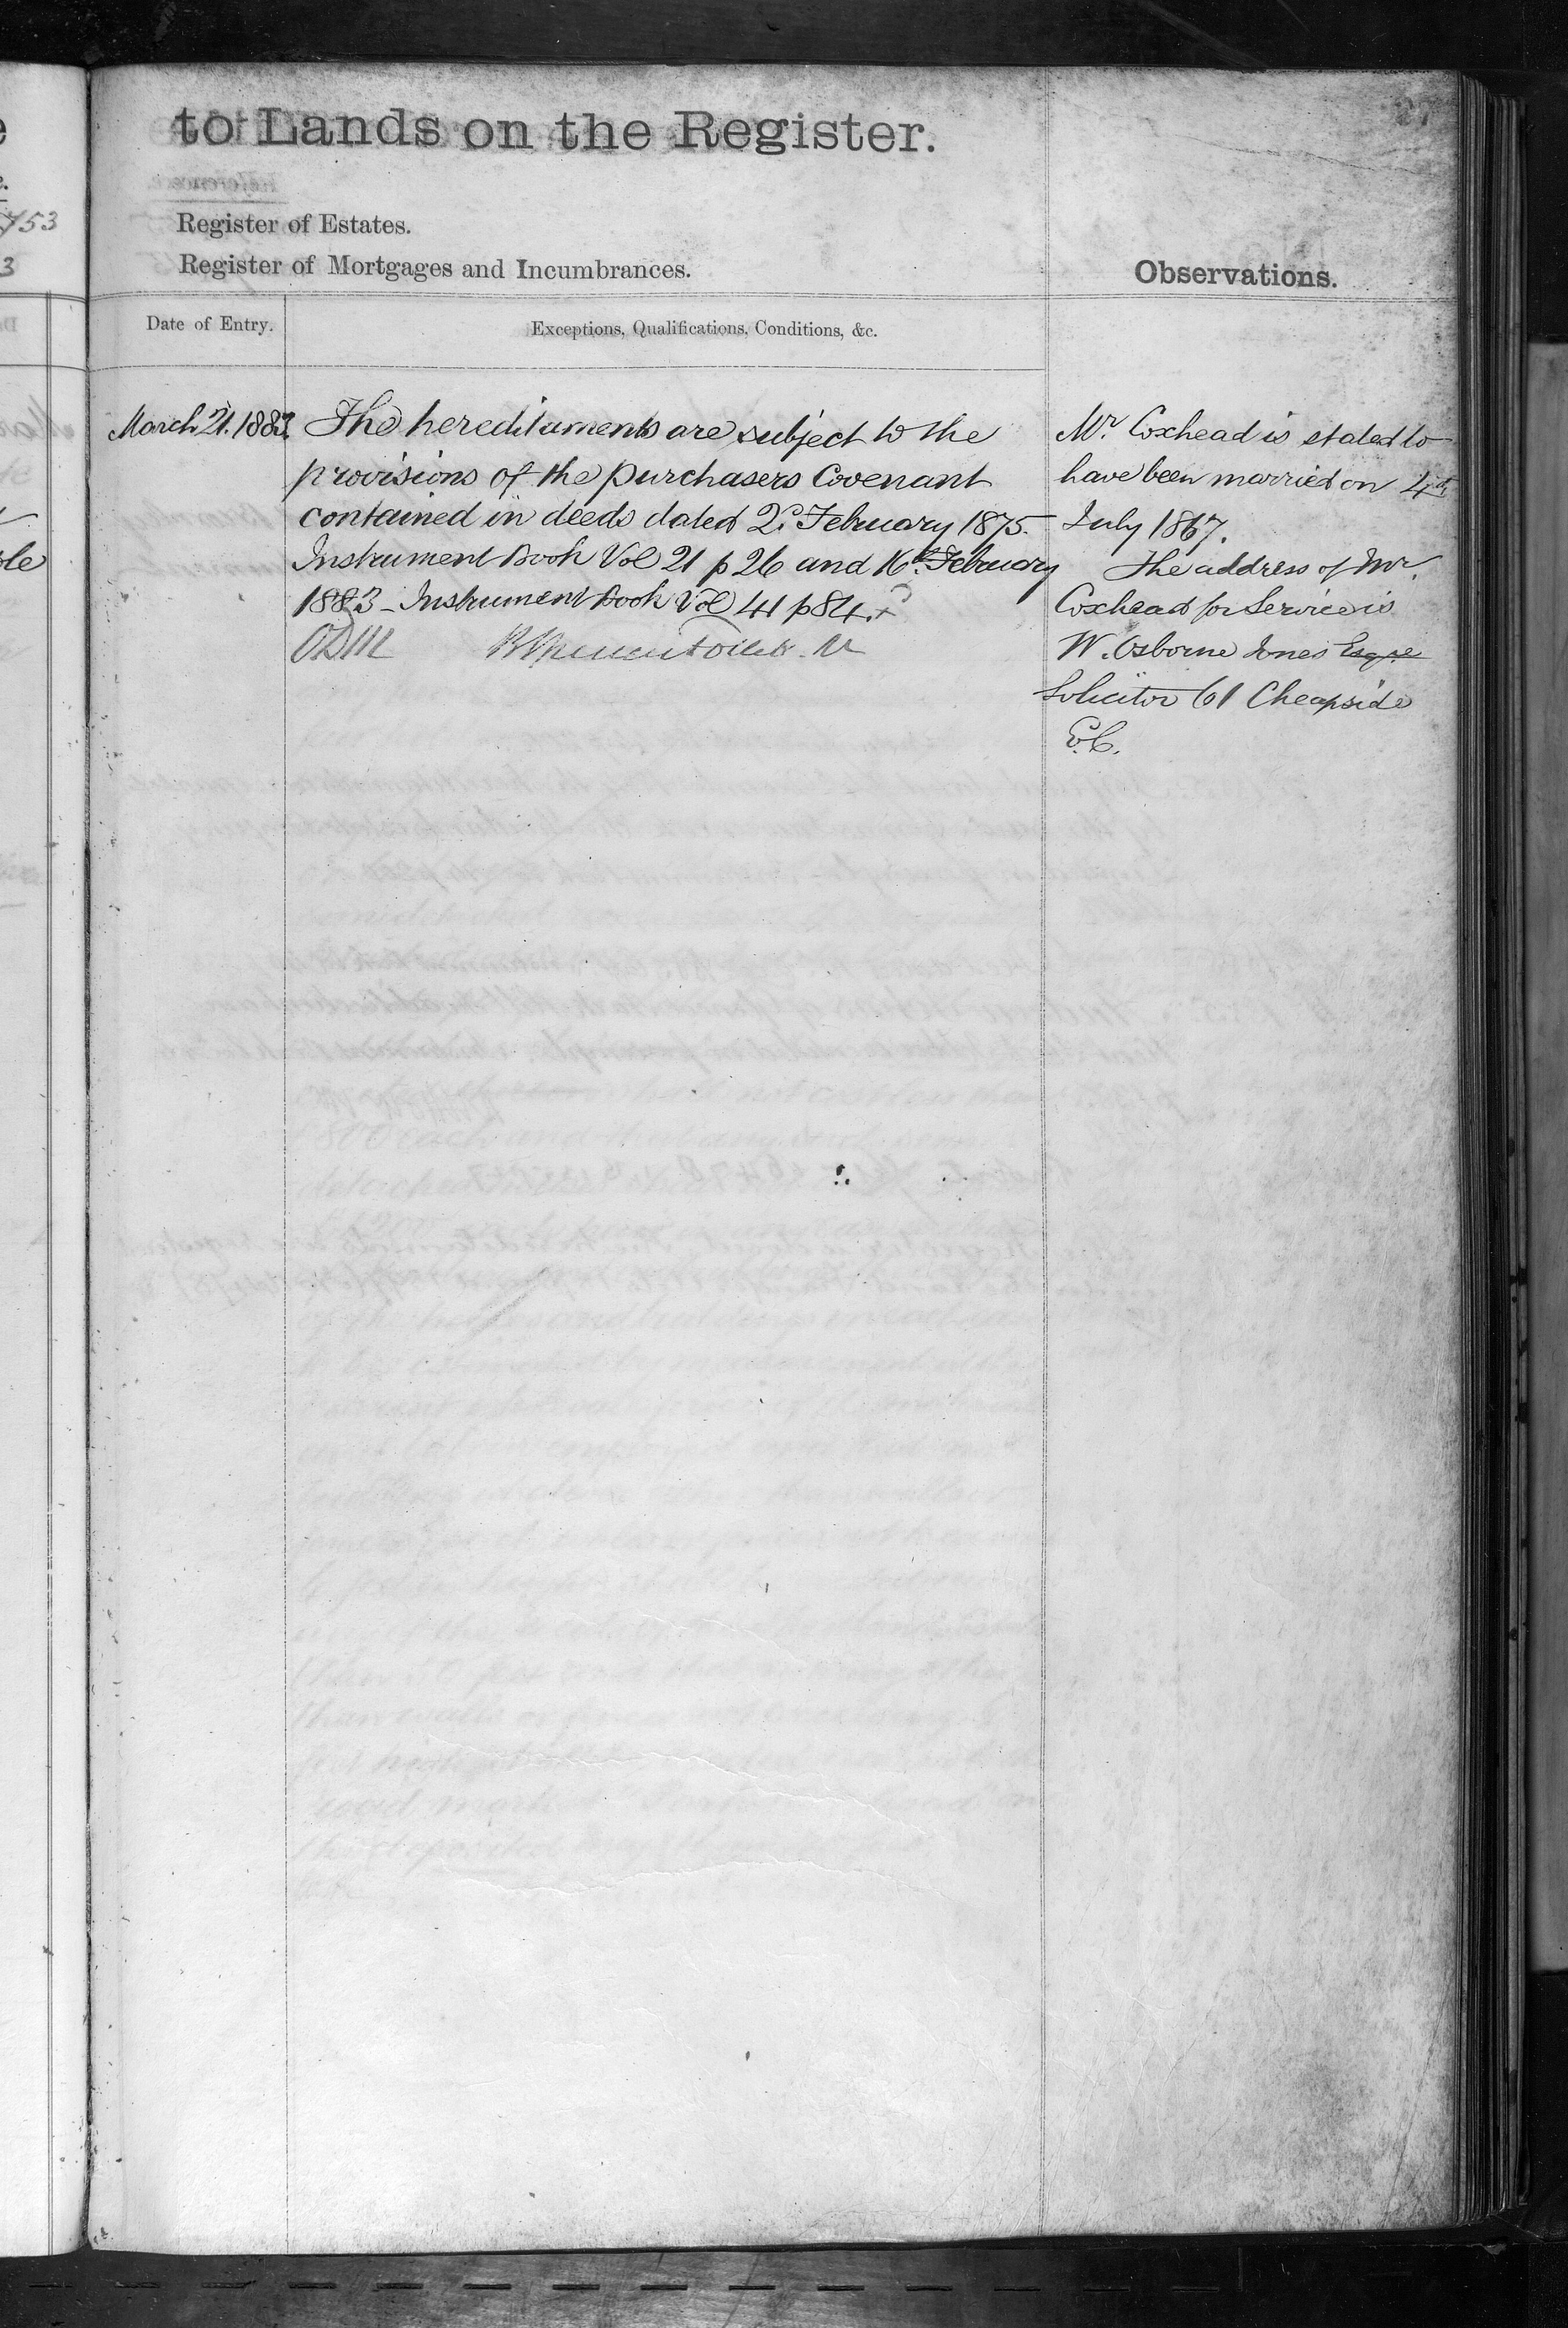 to Lands on the Register.
Register of Estates.
Register of Mortgages and Incumbrances.
Observations.
Date of Entry.
Exceptions, Qualifications, Conditions, &c.
March 21. 1883.
The hereditaments are subject to the
provisions of the purchasers Covenant
contained in deeds dated 2d. February 1875.
Instrument Book Vol 21 p 26 and 16th. February
1883 - Instrument Book Vol 41 p 84.
Mr. Coxhead is stated to
have been married on 4th.
July 1867.
The address of Mr.
Coxhead for Service is
W. Osborne Jones Esqre
Solicitor 61 Cheapside
E.C.
753
3